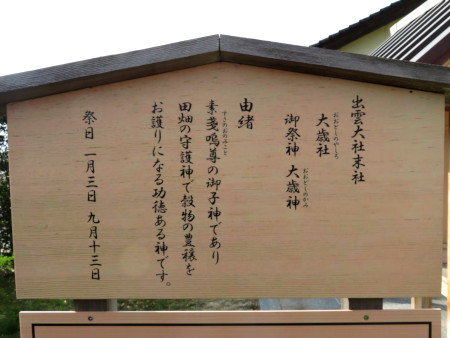 出雲大社末社
大歳社
おおとしのやしろ
御祭神 大歳神
おおとしのかみ
由緒
素戔嗚尊の御子神であり
すさのおのみこと
田畑の守護神で穀物の豊穣を
お護りになる功徳ある神です。
祭日 一月三日 九月十三日